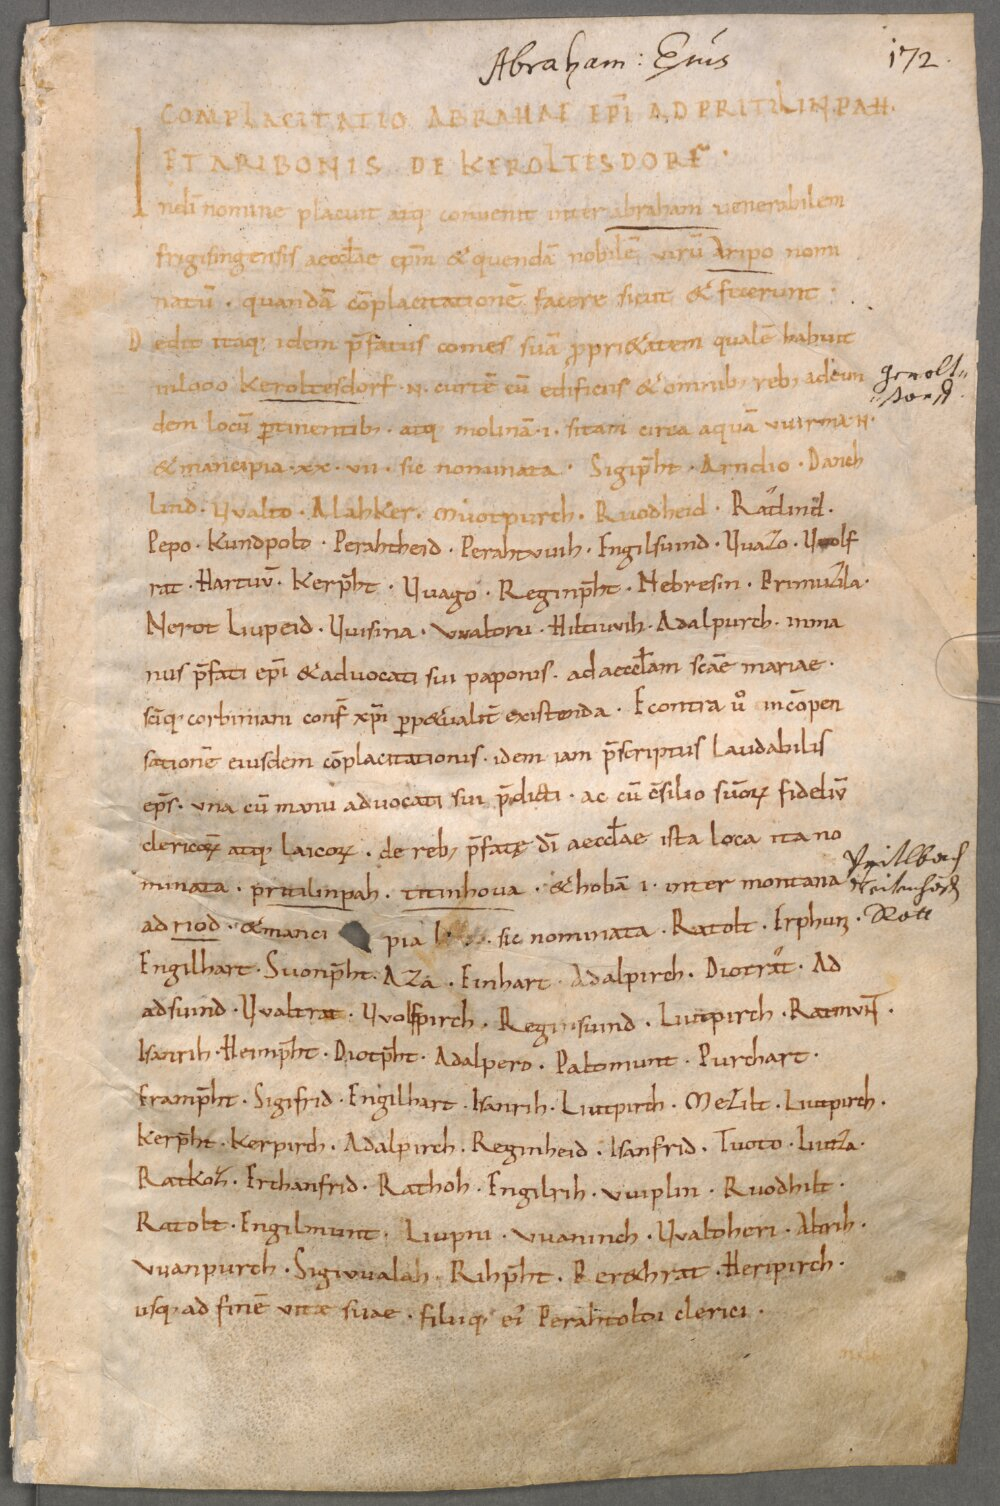 Abraham: Epūs
172.
COMPLACITATIO ABRAHAE EPĪ AD PRITILINPAH.
ET ARIBONIS DE KEROLTESDORF.
Indī nomine placuit atq; conuenit inter abraham uenerabilem
frigisingensis aecclae epm̄ & quendā nobilē uirū Aripo nomi
natū. quandā cōplacitationē facere sicut & fecerunt.
Dedit itaq; idem p̄fatus comes suā ppri&atem qualē habuit
in loco Keroltesdorf. N. curtē cū edificiis & omnib; reb; ad eun
gerolt
dorff.
dem locū ptinentib; atq; molinā .i. sitam circa aquā
& mancipia .xx.vii. sic nominata. Sigip̄ht. Arndio. Danch
lind. Uualto. Alahker. Muotpurch. Ruodheid. Ratlind.
Pepo. Kundpolt. Perahtheid. Perahtuuih. Engilsuind. Uuazo. Uuolf
rat. Hartuū. Kerp̄ht. Uuago. Reginp̄ht. Nebresin. Primuzila.
Nerot Liupeid. Uuisina. Hiltiuuih. Adalpurch. inma
nus p̄fati epī & aduocati sui paponis. ad aecclam scāe mariae.
scīq; corbiniani conf̄ xp̄i pp&ualit̄ existenda. Econtra uº incōpen
sationē eiusdem cōplacitationis. idem iam p̄scriptus laudabilis
ep̄s. una cū manu aduocati sui p̄dicti. ac cū cōsilio suoꝝ fideliū
clericoꝝ atq; laicoꝝ. de reb; p̄fatę dī aecclae ista loca ita no
minata. pritilinpah. titinhoua. & hobā .i. inter montana
ad riod. & manci pia sic nominata. Ratolt. Erphun.
Rott
Engilhart. Suonp̄ht. Aza. Einhart. Adalpirch. Diotrat. Ad
adsuind. Uualtrat. Uuolfpirch. Reginsuind. Liutpirch. Ratmunt.
Isanrih. Heimp̄ht. Diotp̄ht. Adalpero. Patomunt. Purchart.
Eramp̄ht. Sigifrid. Engilhart. Isanrih. Liutpirch. Mezilt. Liutpirch.
Kerp̄ht. Kerpirch. Adalpirch. Reginheid. Isanfrid. Tuoto. Liutza.
Ratkoz. Erchanfrid. Rathoh. Engilrih. Uuiplin. Ruodhilt.
Ratolt. Engilmunt. Liupni. Uuaninch. Uualtheri. Altrih.
Uuanpurch. Sigiuualah. Rihp̄ht. Heripirch.
usq; ad finē uitae suae. filiiq; ei Perahtoldi clerici.